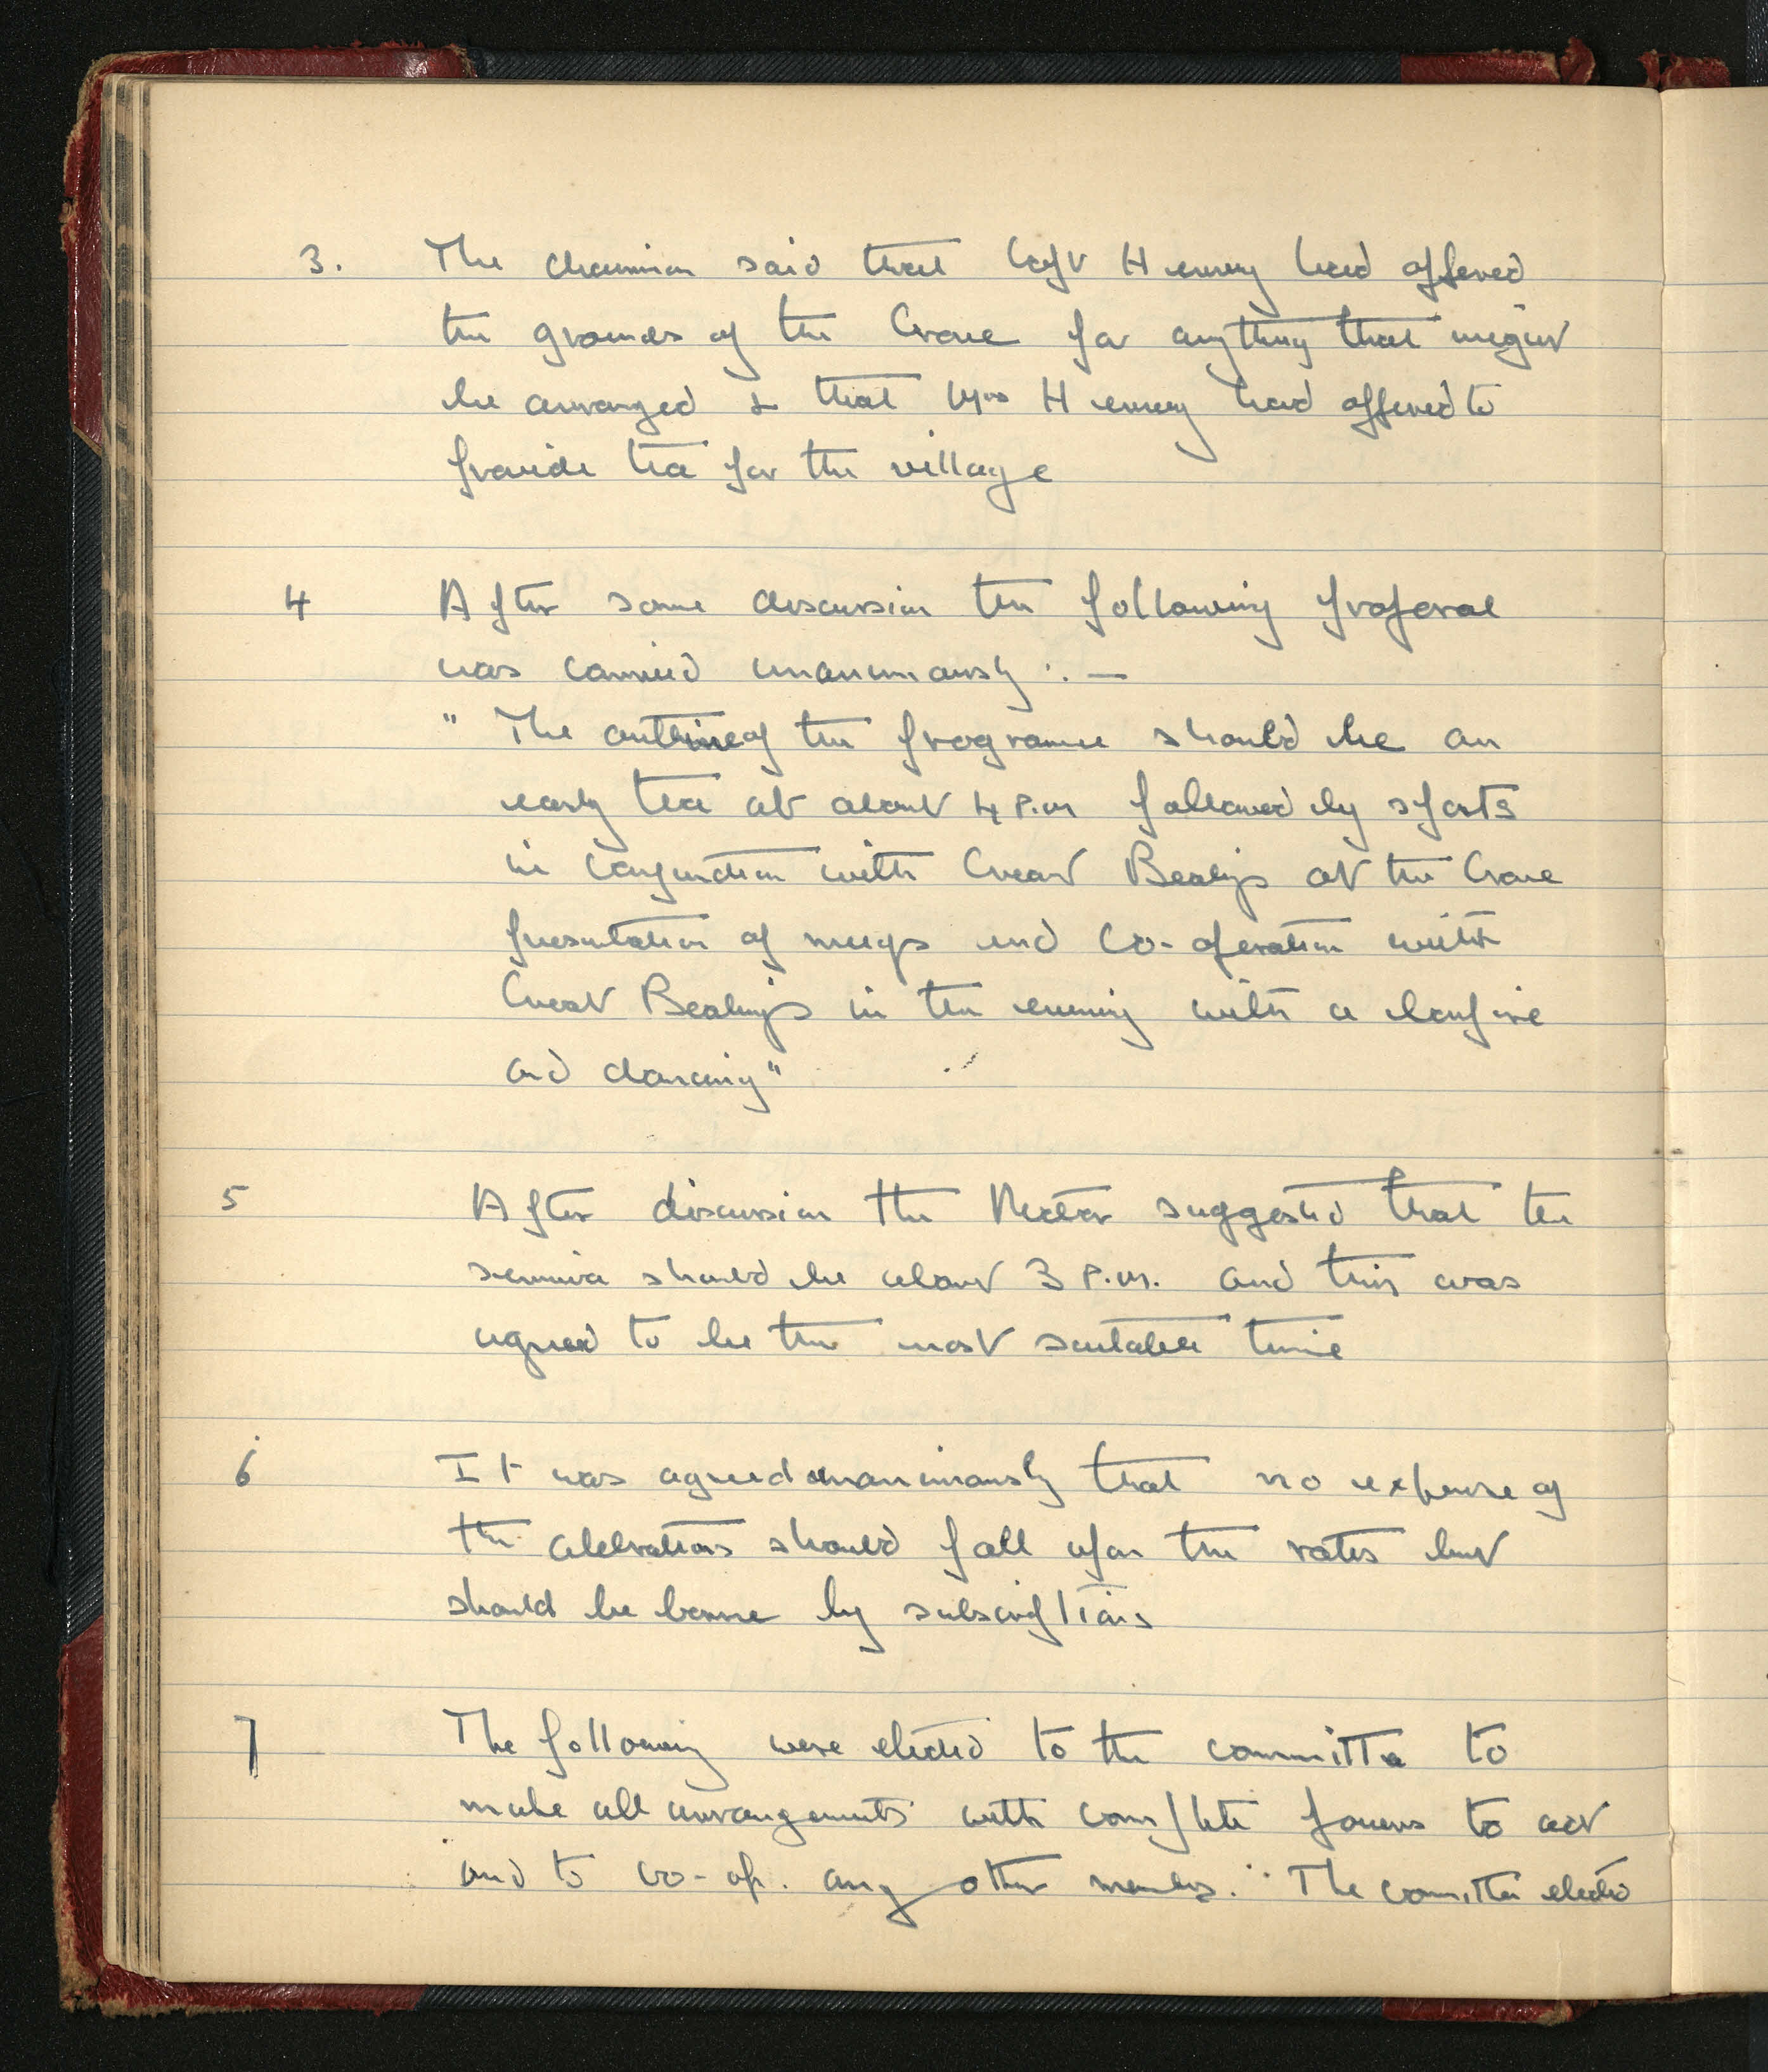 3. The chairman said that Capt Henney had offered
the grounds of the Grove for anything that might
be arranged & that Mrs Henney had offered to
provide tea for the village
4 After some discussion the following proposal
was carried unanimously :—
" The outline of the programe should be an
early tea at about 4 P.M followed by sports
in conjunction with Great Bealings at the Grove
presentation of mugs and co-operation with
Great Bealings in the evening with a bonfire
and dancing"
5 After discussion the Rector suggested that the
service should be about 3 P.M. and this was
agreed to be the most suitable time
6 It was agreed unanimously that no expense of
the celebrations should fall upon the rates but
should be borne by subscriptions
7 The following were elected to the committee to
make all arrangements with complete powers to act
and to co-op. any other members. The committee elected